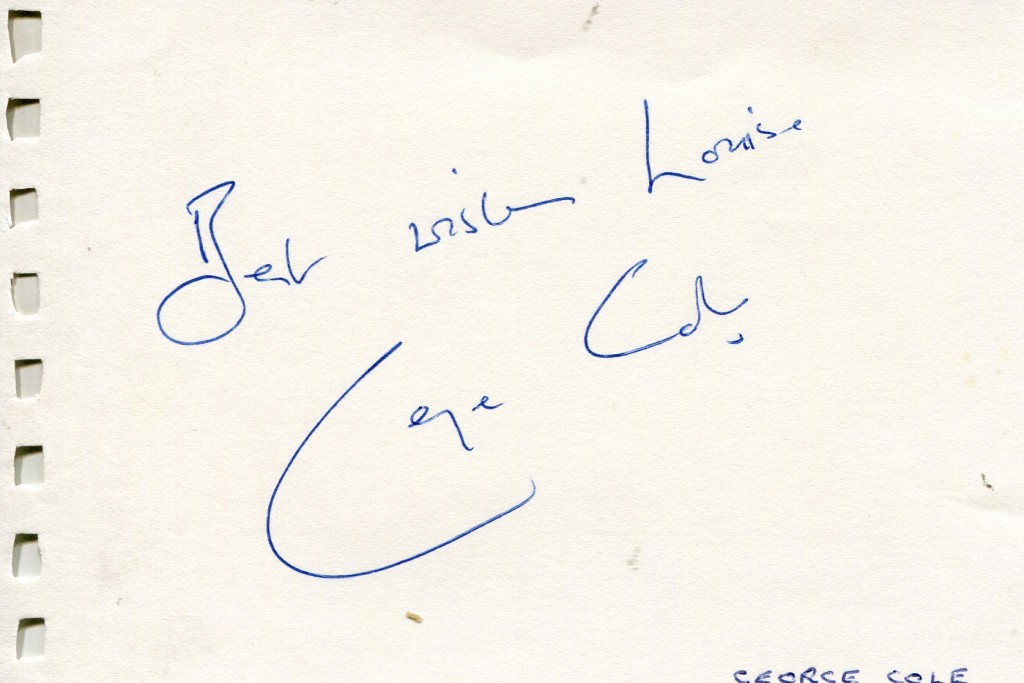 Best wishes Louise
George Cole
GEORGE COLE